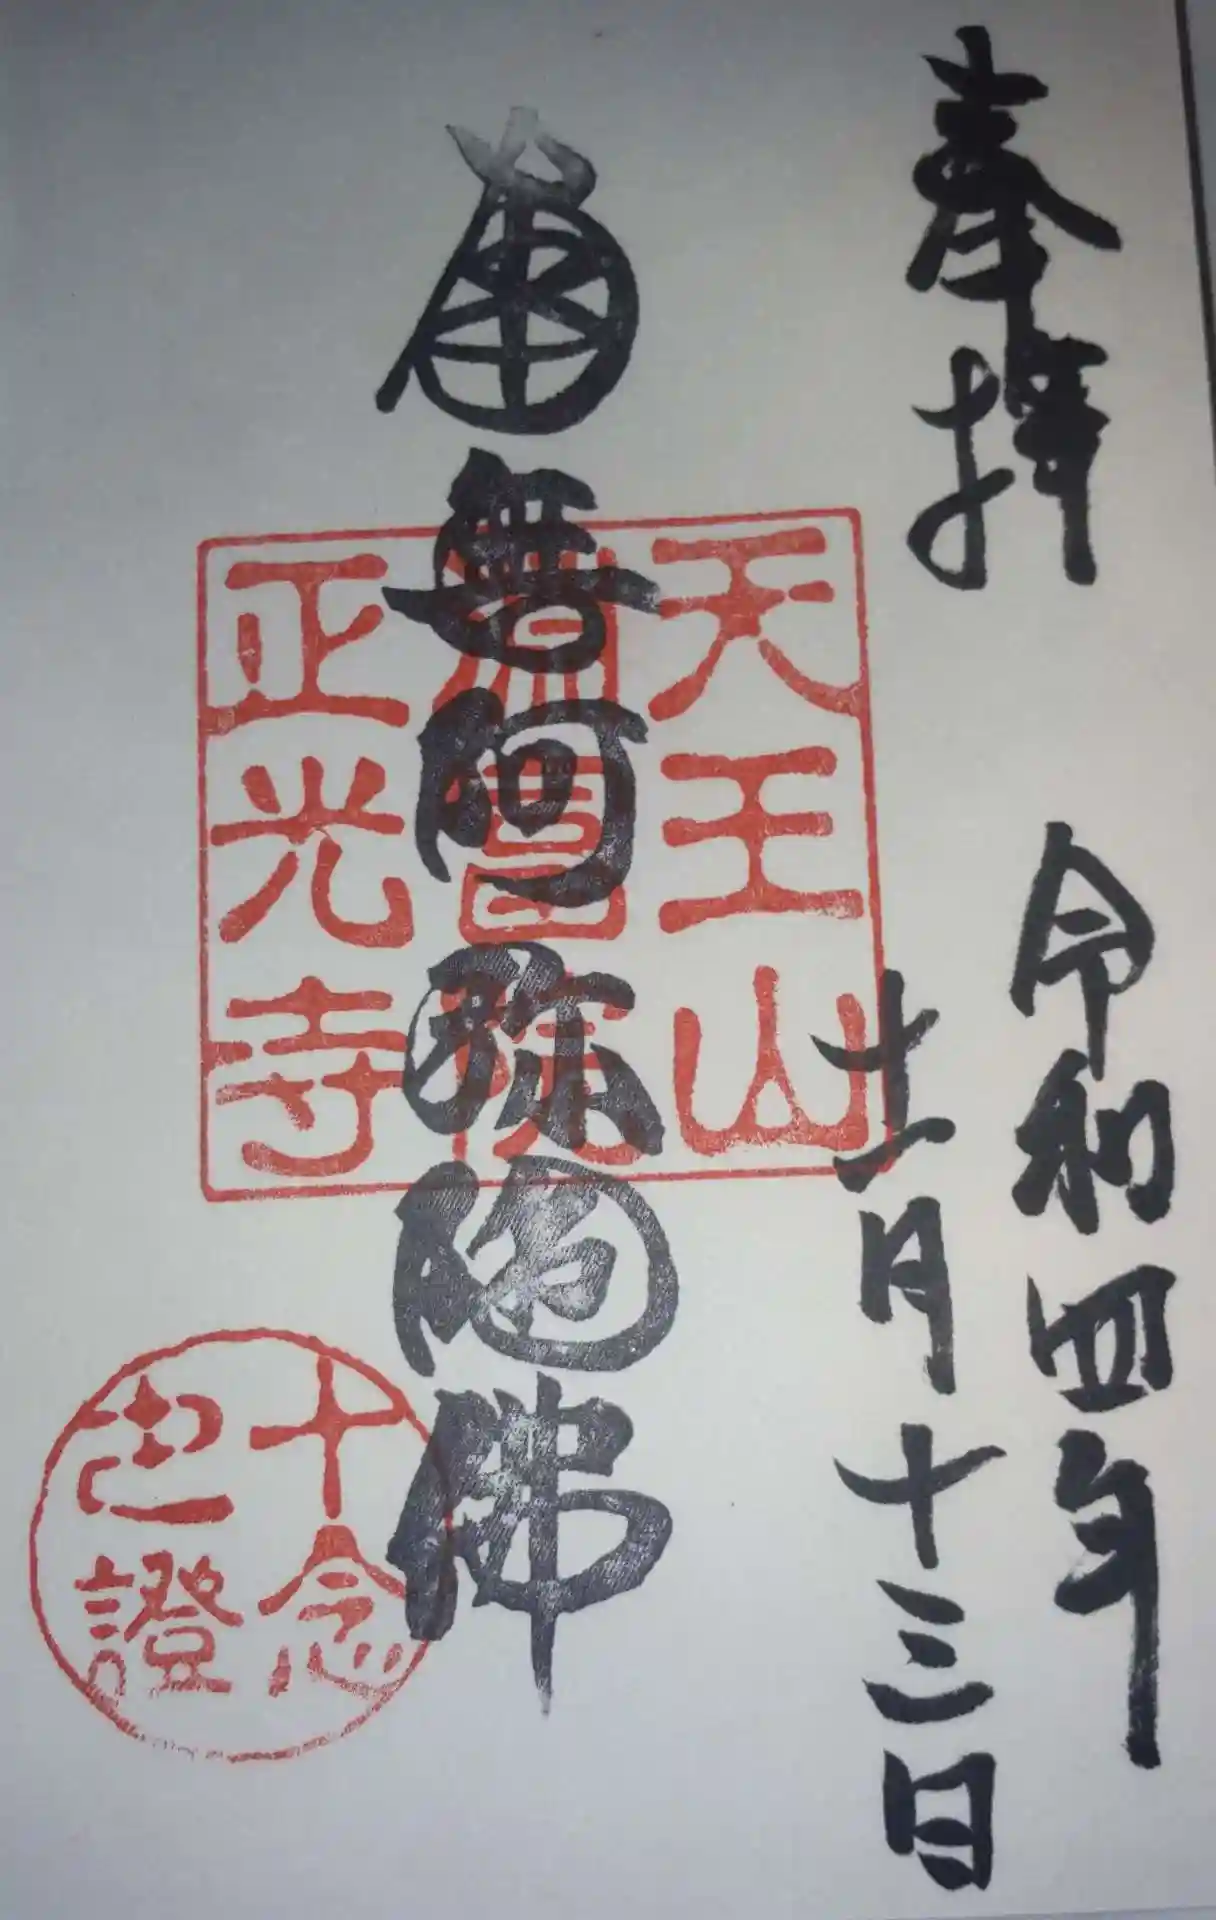 奉拝
令和四年
十一月十三日
南無阿弥陀佛
天王山
院
正光寺
十念
證